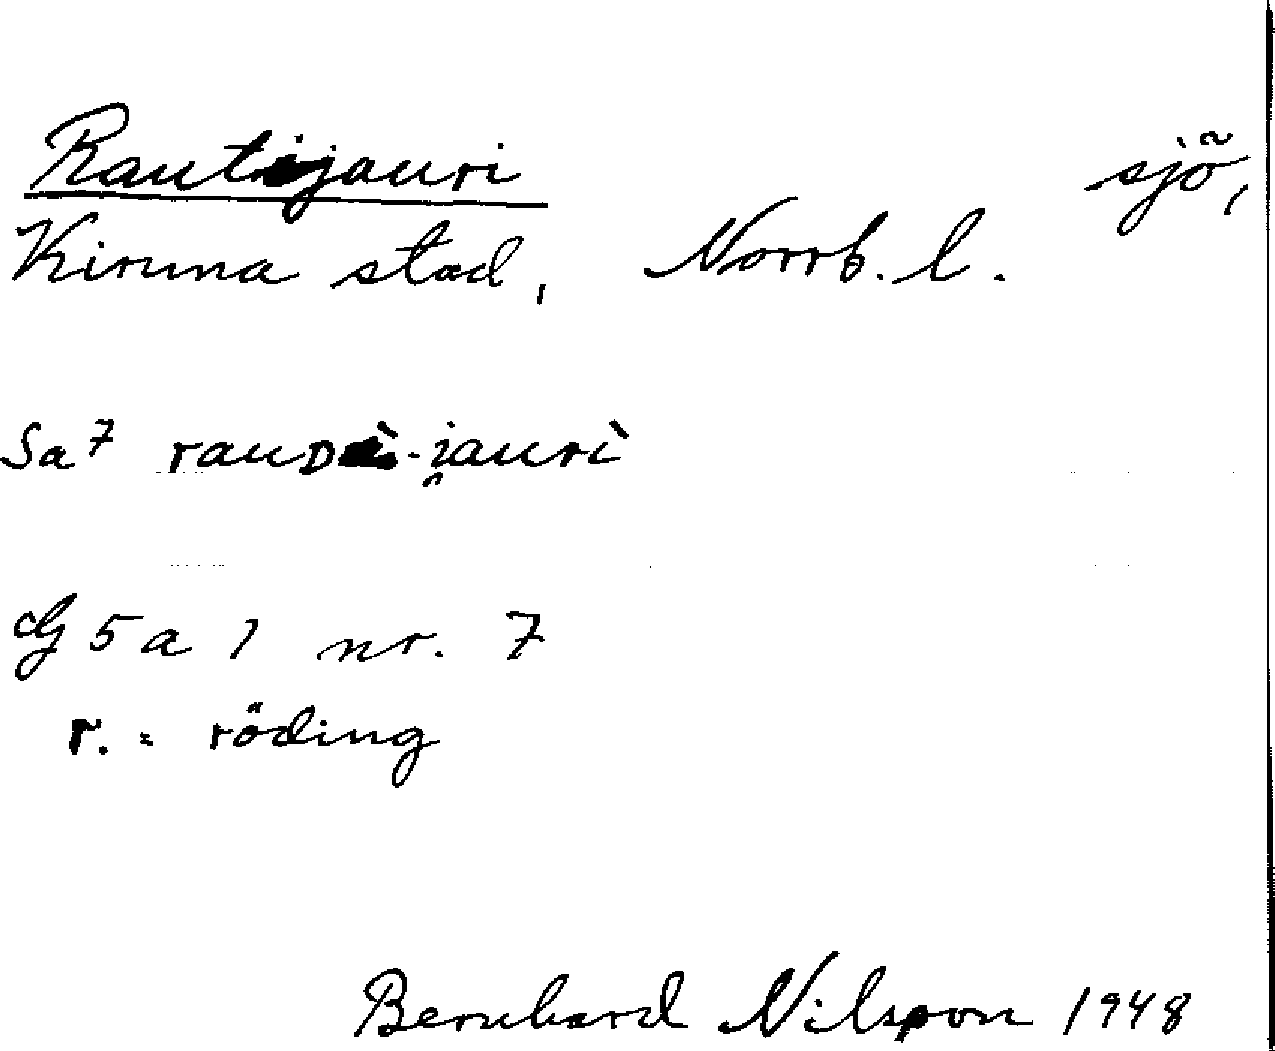 Rautijauri sjö,
Kiruna stad, Norrb. l.
Sa7 rauDì-i̯aurì
G 5 a 1 nr. 7
r. = röding
Bernhard Nilsson 1948